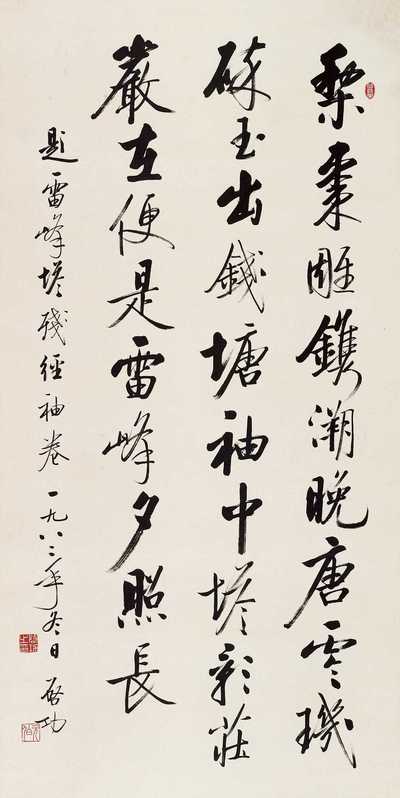 梨棗雕鐫溯晚唐零璣
碎玉出錢塘袖中塔影莊
嚴在便是雷峰夕照長
題雷峰塔殘經袖卷 一九八二年冬日 啓功